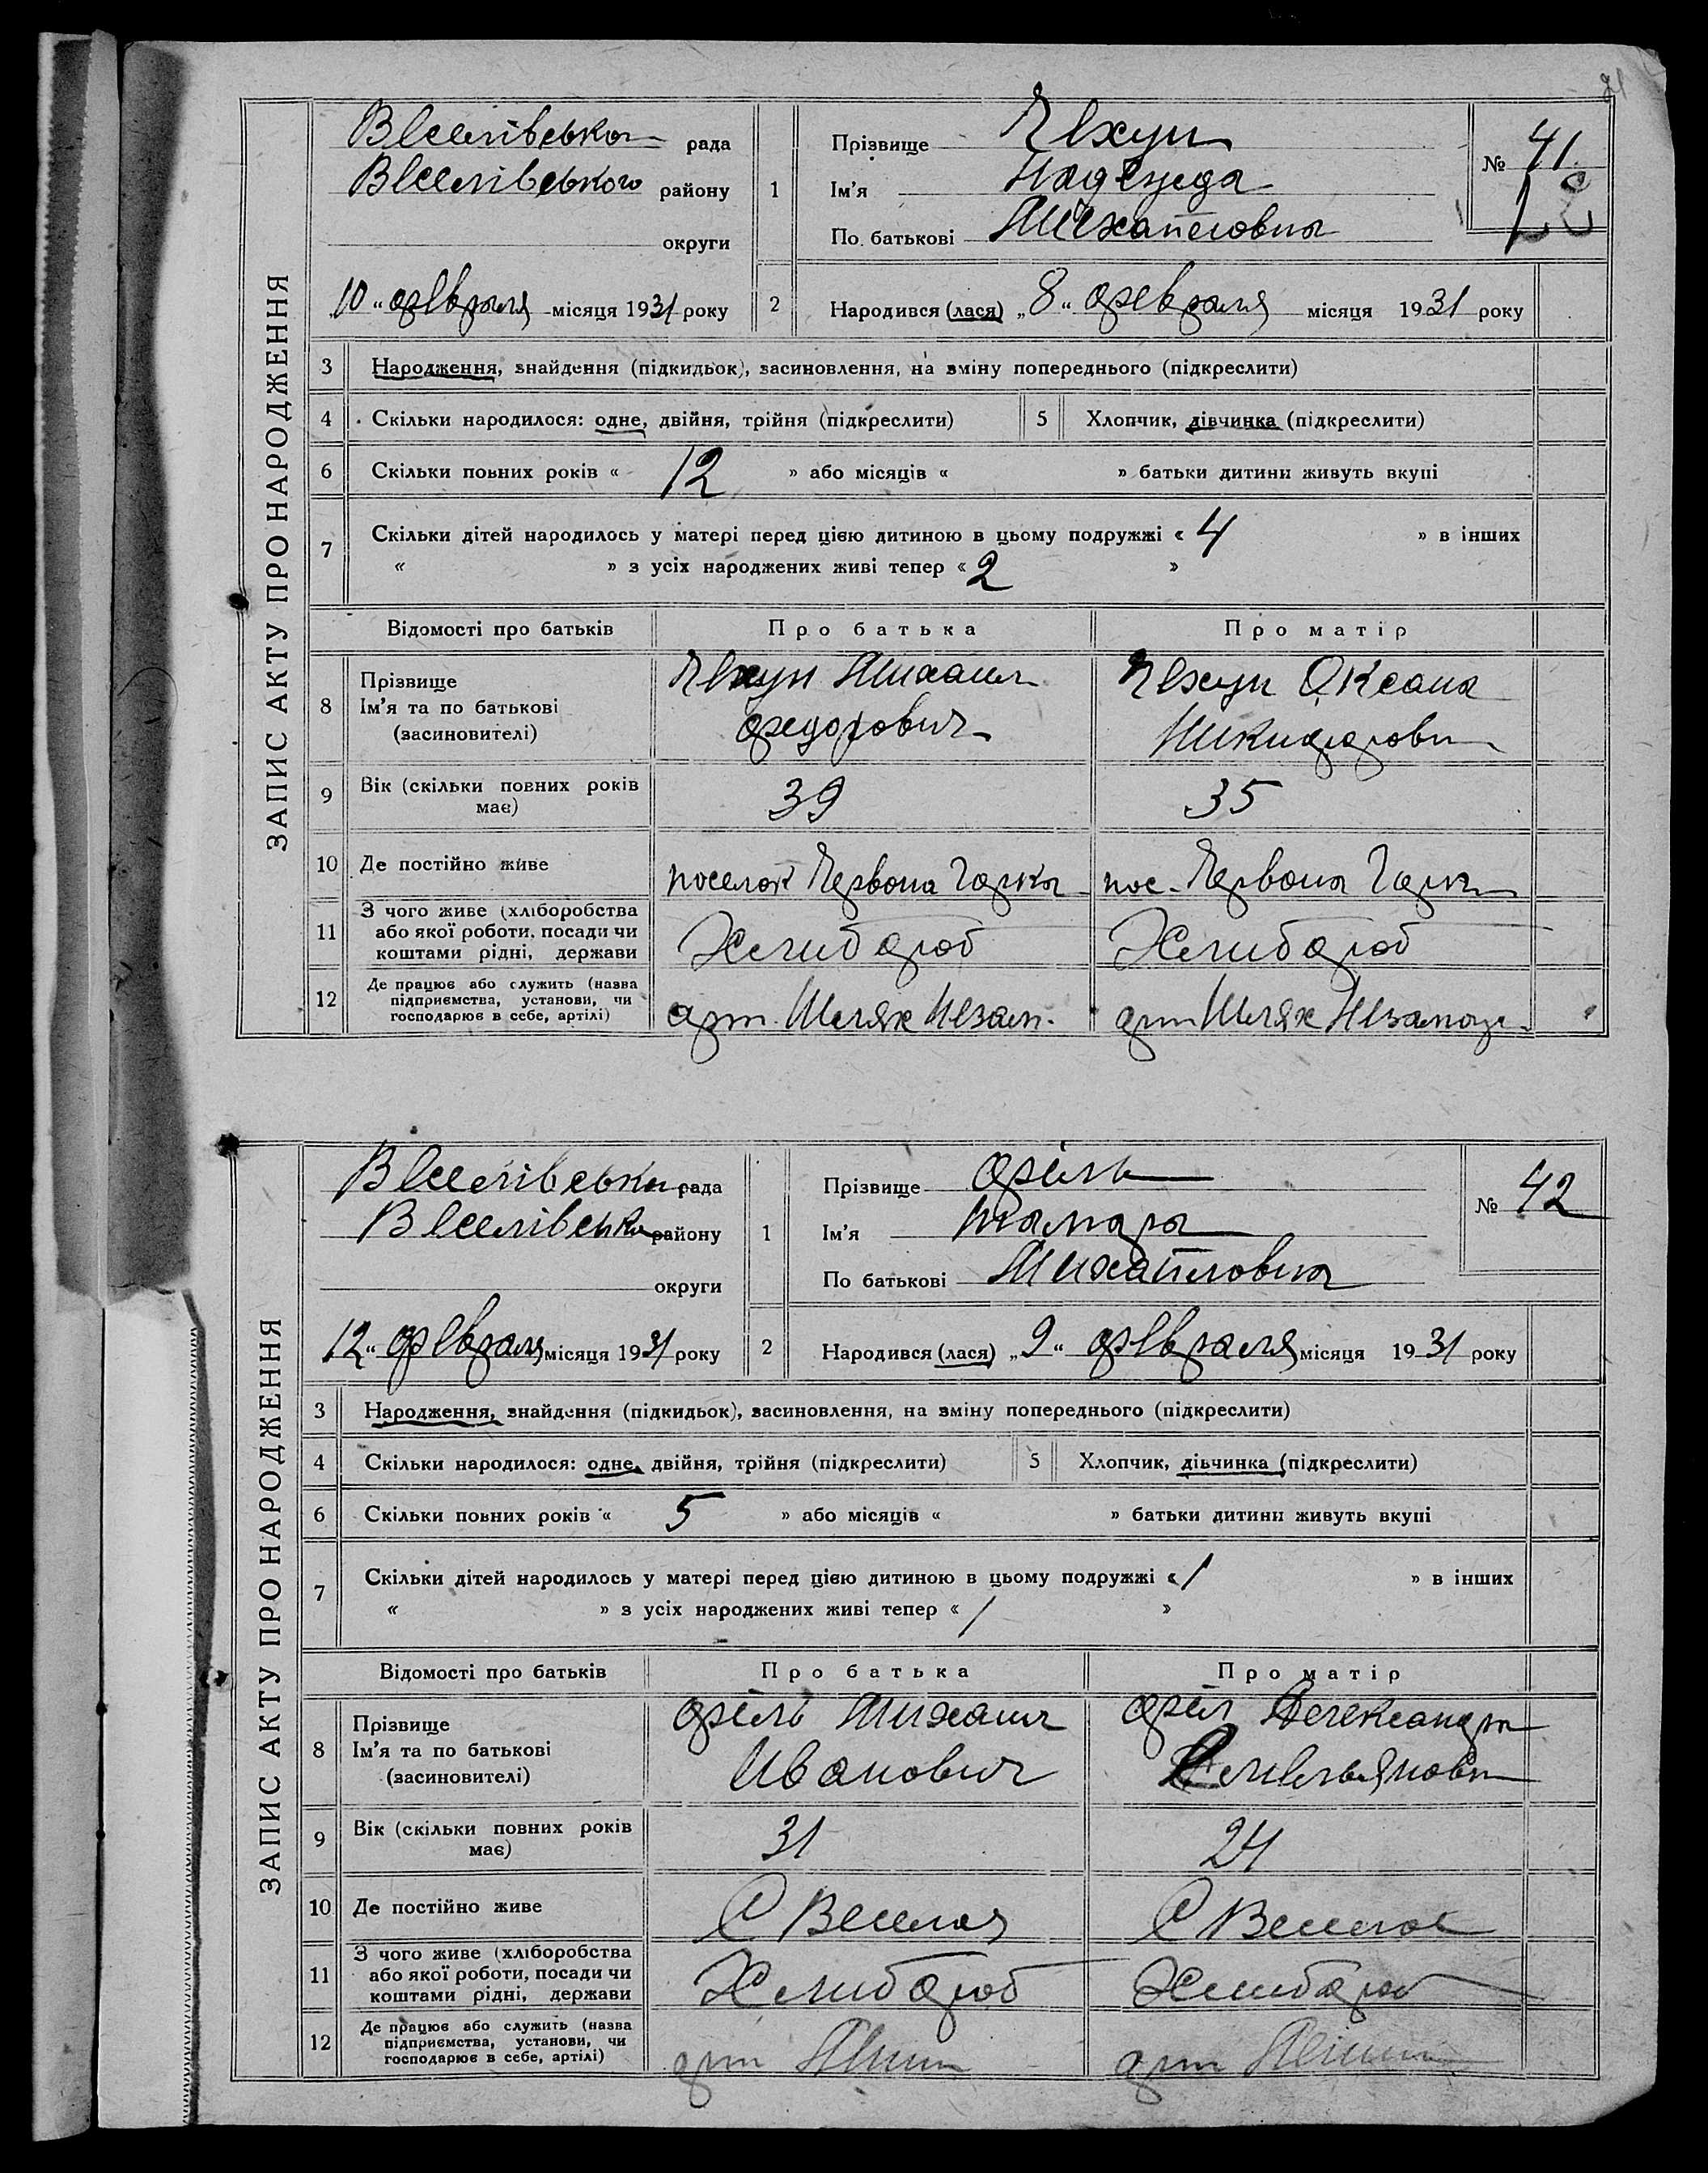 ЗАПИС АКТУ ПРО НАРОДЖЕННЯ
Веселівська рада
Веселівського району
округи
„10“ февраля місяця 1931 року
1 Прізвище Чехун
Ім'я Надежда
По батькові Михайловна
№ 41
2 Народився (лася) „8“ февраля місяця 1931 року
3 Народження, знайдення (підкидьок), засиновлення, на зміну попереднього (підкреслити)
4 Скільки народилося: одне, двійня, трійня (підкреслити) 5 Хлопчик, дівчинка (підкреслити)
6 Скільки повних років « 12 » або місяців « » батьки дитини живуть вкупі
7 Скільки дітей народилось у матері перед цією дитиною в цьому подружжі « 4 » в інших
« » з усіх народжених живі тепер « 2 »
Відомості про батьків Про батька Про матір
8 Прізвище Ім'я та по батькові (засновителі)
Чехун Михаил Федорович
Чехун Оксана Никифоровн
9 Вік (скільки повних років має) 39 35
10 Де постійно живе поселок Червона Горка пос. Червона Горка
11 З чого живе (хліборобства або якої роботи, посади чи коштами рідні, держави Хлибороб Хлибороб
12 Де працює або служить (назва підприємства, установи, чи господарює в себе, артілі) арт. Шлях Незам. арт Шлях Незамож
ЗАПИС АКТУ ПРО НАРОДЖЕННЯ
Веселівська рада
Веселівсько району
округи
„12“ февраля місяця 1931 року
1 Прізвище Фёль
Ім'я Тамара
По батькові Михайловна
№ 42
2 Народився (лася) „9“ февраля місяця 1931 року
3 Народження, знайдення (підкидьок), засиновлення, на зміну попереднього (підкреслити)
4 Скільки народилося: одне, двійня, трійня (підкреслити) 5 Хлопчик, дівчинка (підкреслити)
6 Скільки повних років « 5 » або місяців « » батьки дитини живуть вкупі
7 Скільки дітей народилось у матері перед цією дитиною в цьому подружжі « 1 » в інших
« » з усіх народжених живі тепер « 1 »
Відомості про батьків Про батька Про матір
8 Прізвище Ім'я та по батькові (засиновителі)
Фёль Михаил Иванович
Фёл Александра Емельяновн
9 Вік (скільки повних років має) 31 24
10 Де постійно живе С Веселоя С Веселое
11 З чого живе (хліборобства або якої роботи, посади чи коштами рідні, держави Хлибороб Хлибороб
12 Де працює або служить (назва підприємства, установи, чи господарює в себе, артілі) арт арт